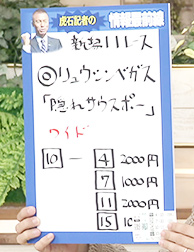 虎石記者の
情報最前線
新潟11レース
◎リュウシンベガス
「隠れサウスポー」
ワイド
10 ー 4 2000円
7 1000円
11 2000円
15 10